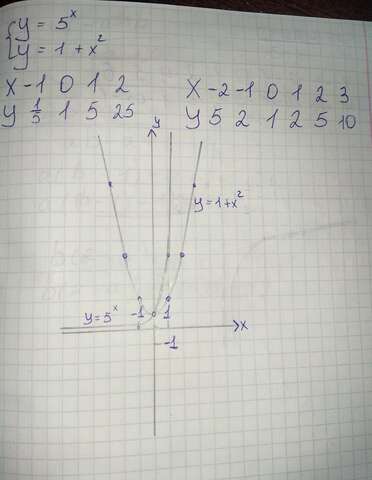 {y = 5^x
y = 1 + x^2
x -1 0 1 2
y 1/5 1 5 25
x -2 -1 0 1 2 3
y 5 2 1 2 5 10
y
y = 1 + x^2
y = 5^x
-1
1
x
-1